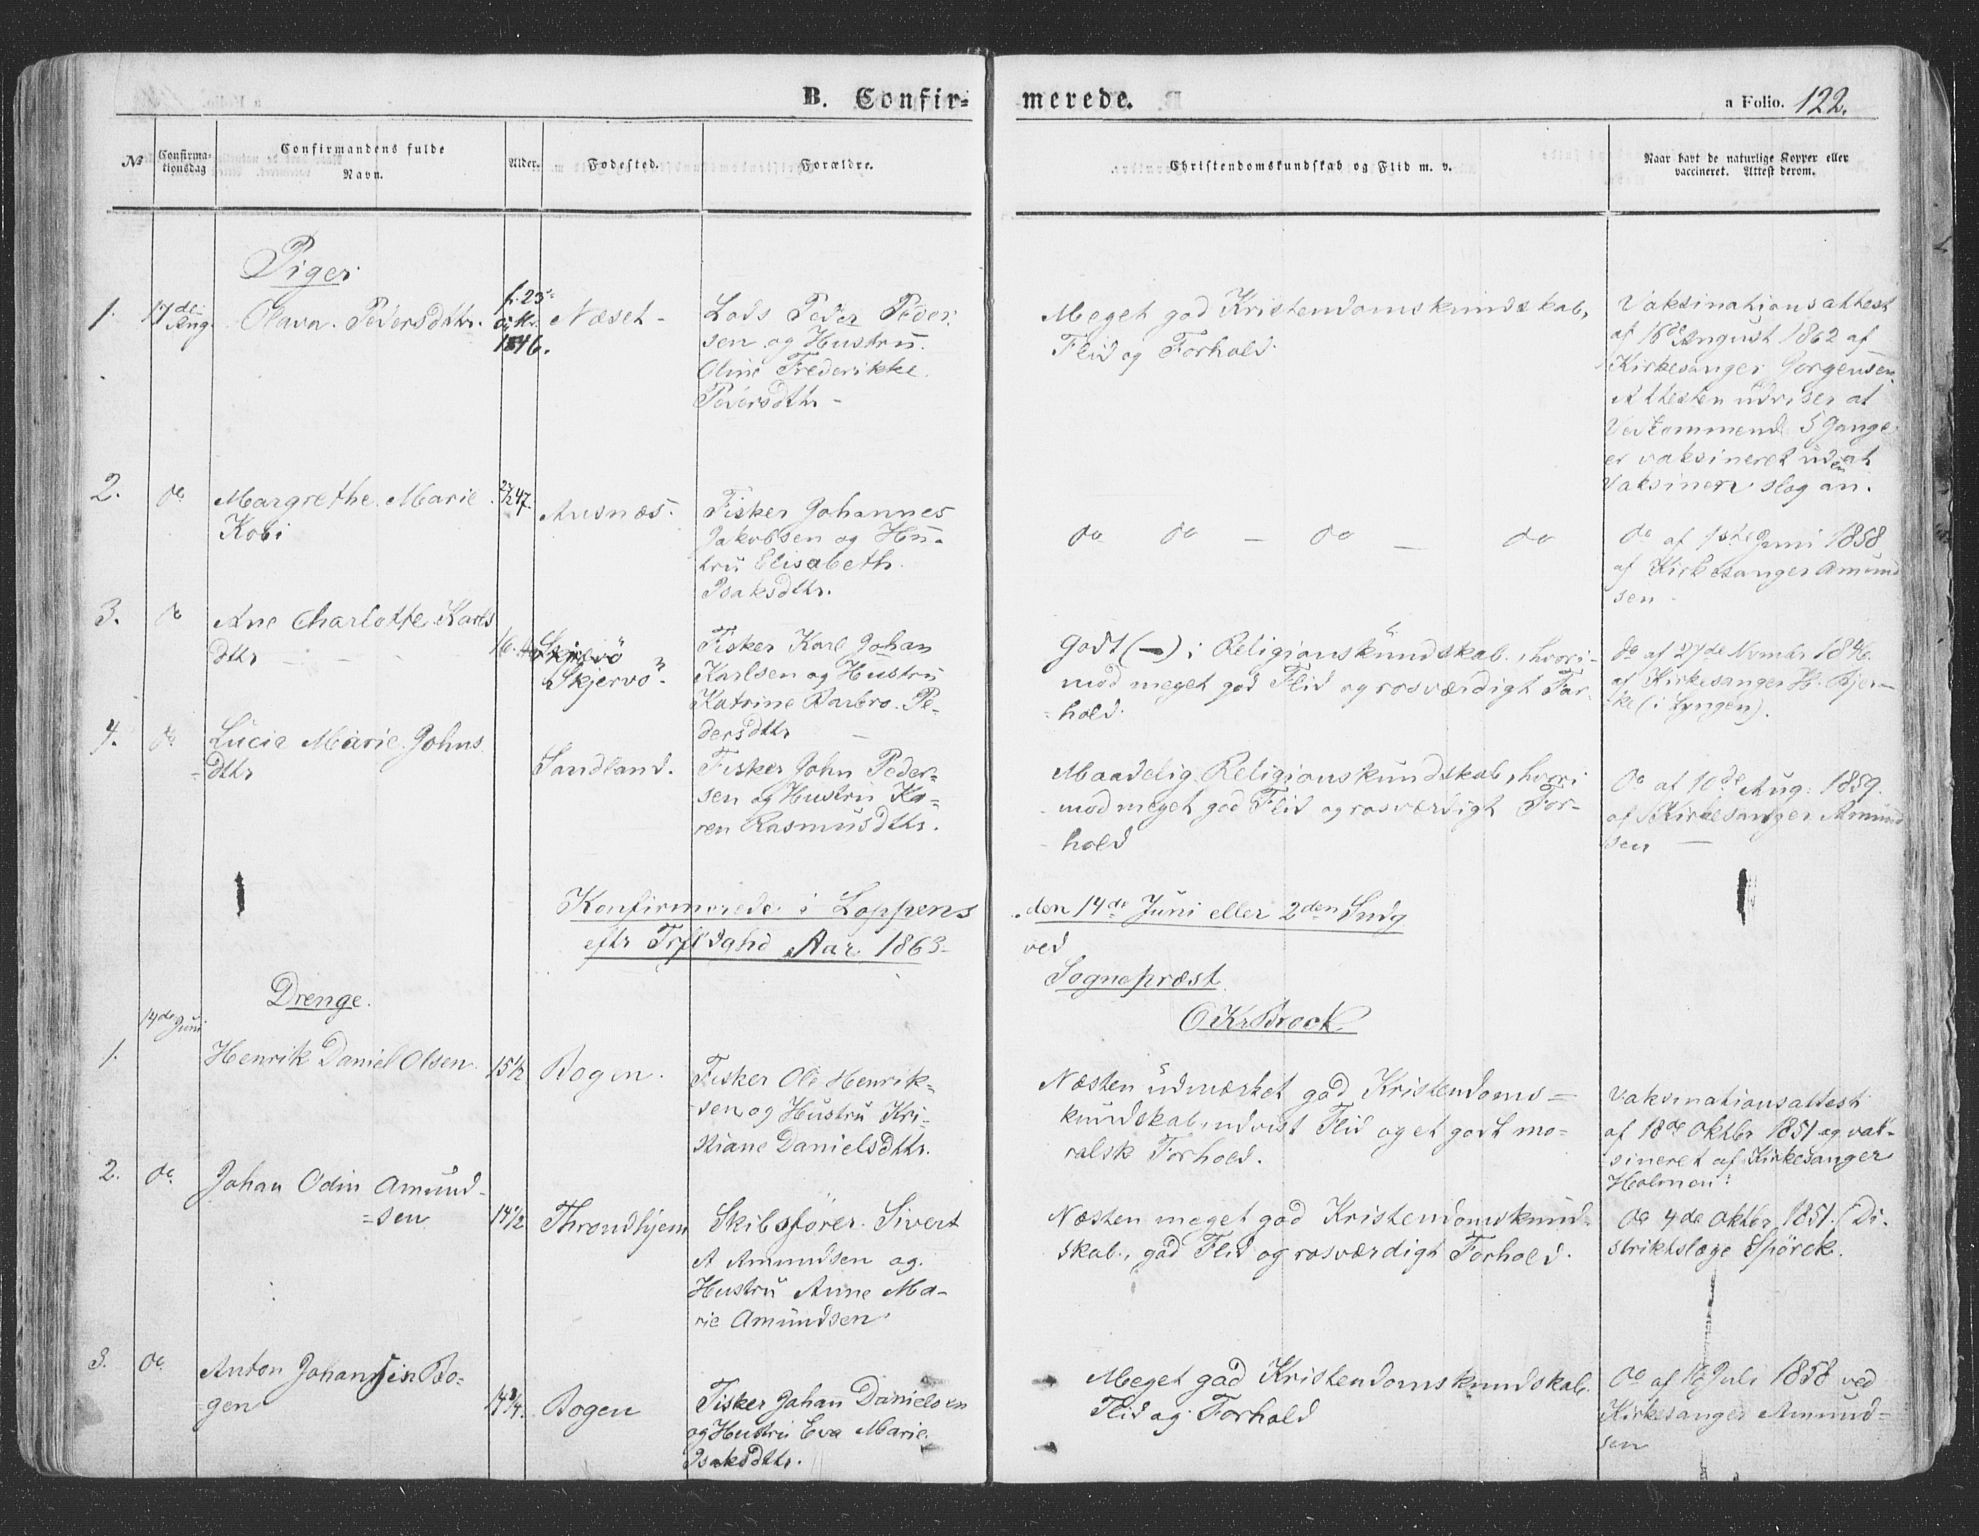 B. Confir-
merede.
a Folio. 122.
No
Confirma-
tionsdag
Confirmandens fulde
Navn.
Alder.
Fødested.
Forældre.
Christendomskundskab og Flid m. v.
Naar havt de naturlige Kopper eller
vaccineret. Attest derom.
Piger
1.
17de
Aug.
Olava. Pedersdthr.
f. 25
1846.
Næset -
Lods Peder Peder
sen og Hustru
Oline Frederikke
Pedersdthr -
Meget god Kristendomskundskab,
Flid og Forhold.
Vaksinationsattest
af 18de August 1862 af
Kirkesanger Jörgensen
Attesten udviser at
Vedkommend 5 Gange
er vaksineret uden at
Vaksinen slog an.
2.
do
Margrethe Marie
Kobi
47.
Ausnæs.
Fisker Johannes
Jakobsen og Hu-
tru Elisabeth
Isaksdthr.
do do - do - do
do af 1ste Juni 1858
af Kirkesanger Amund
sen -
3.
do
Ane Charlotte Karls
dthr - - -
16.
Skjervö
Skjervö
Fisker Karl Johan
Karlsen og Hustru
Katrine Barbro Pe-
dersdthr -
Godt (-) i Religionskundskab, hvori-
mod meget god Flid og rosværdigt For
hold.
do af 27de Novmbr 1846
af Kirkesanger H. Kjer-
(i Lyngen).
4.
do
Lucie Marie Johns
=dthr
Sandland.
Fisker John Peder-
sen og Hustru Ka-
ren Rasmusdthr.
Maadelig Religionskundskab, hvori
mod meget god Flid og rosværdigt For-
hold
do af 10de Aug: 1859.
af Kirkesanger Amund
sen -
Konfirmerede i Loppens
den 14de Juni eller 2den Sndg
eftr Trefoldghd Aar 1863-
ved
Sognepræst
O Kr Brock
Drenge.
14de Juni
1.
Henrik Daniel Olsen
15 1/2
Bogen.
Fisker Ole Henrik-
sen og Hustru Kri-
stiane Danielsdthr.
Næsten udmærket god Kristendoms=
kundskab, udvist Flid og et godt mo-
ralsk Forhold.
Vaksinationsattest
af 18de Oktbr 1851 og vak-
sineret af Kirkesanger
Holmen:
2.
do
Johan Odin Amund-
=sen
14 1/2
Throndhjem
Skibsfører Sivert
A Amundsen og
Hustru Anne Ma-
rie Amundsen
Næsten meget god Kristendomskund-
skab, god Flid og rosværdigt Forhold.
do 4de Oktbr 1851. (Di-
striktslæge Spörck.
3.
do
Anton Johansen Bo-
gen
14 3/4
Bogen
Fisker Johan Danielsen
og Hustru Eva Marie
Isaksdthr.
Meget god Kristendomskundskab
Flid og Forhold
do af Juli 1858 ved
Kirkesanger Amund-
sen